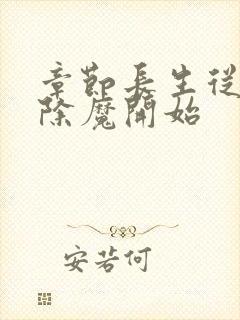 章節長生從
除魔開始
安若何